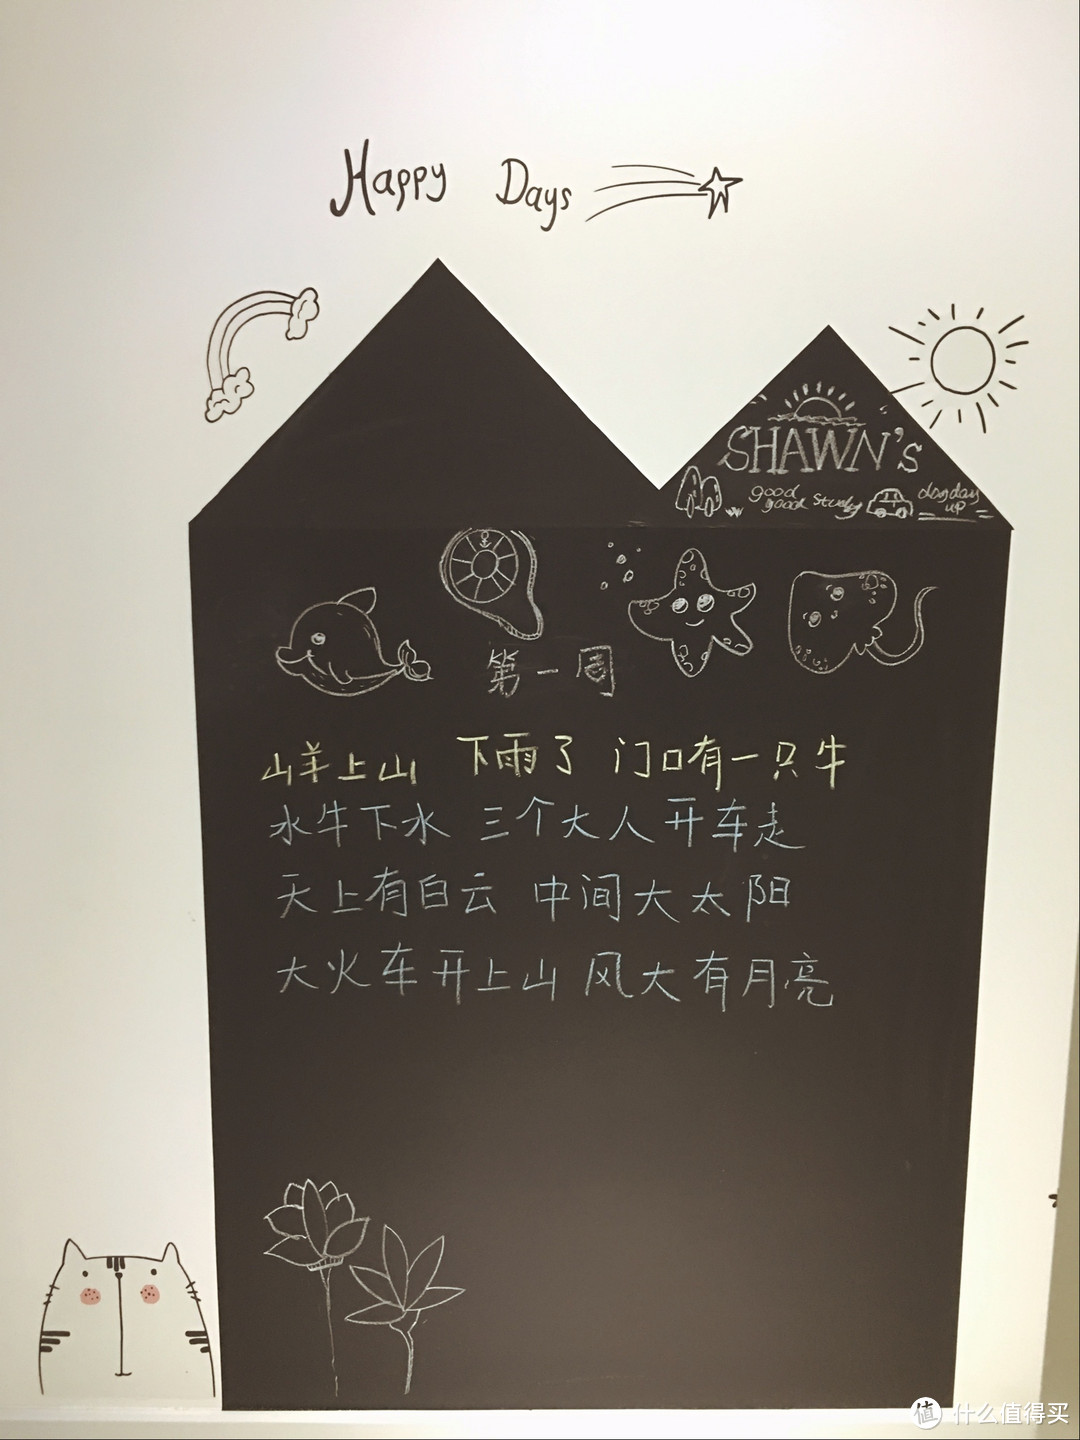 Happy Days
SHAWN's
good good study
day day up
第一周
山羊上山 下雨了 门口有一只牛
水牛下水 三个大人开车走
天上有白云 中间大太阳
大火车开上山 风大有月亮
值 什么值得买